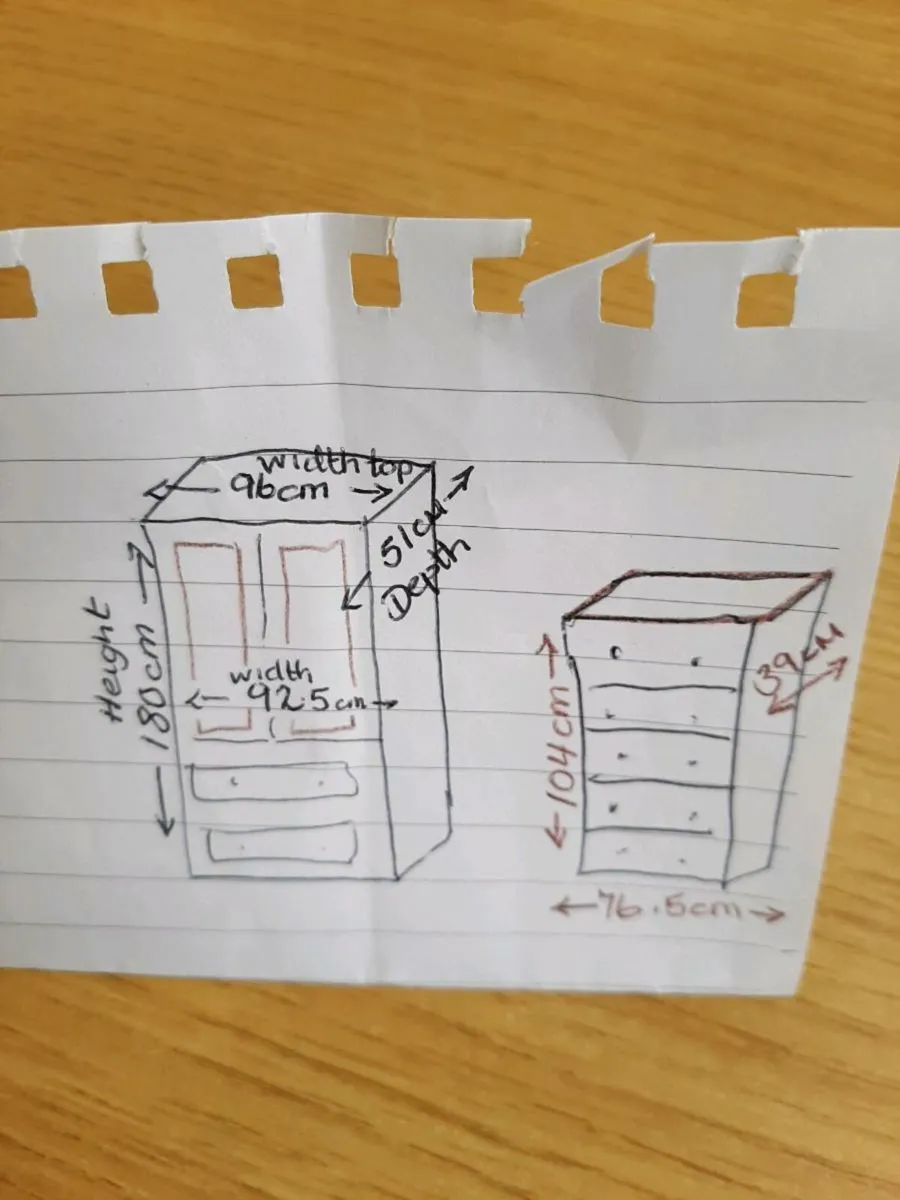 width top
96cm
51cm
Depth
Height
180cm
width
92.5cm
39cm
104cm
76.5cm